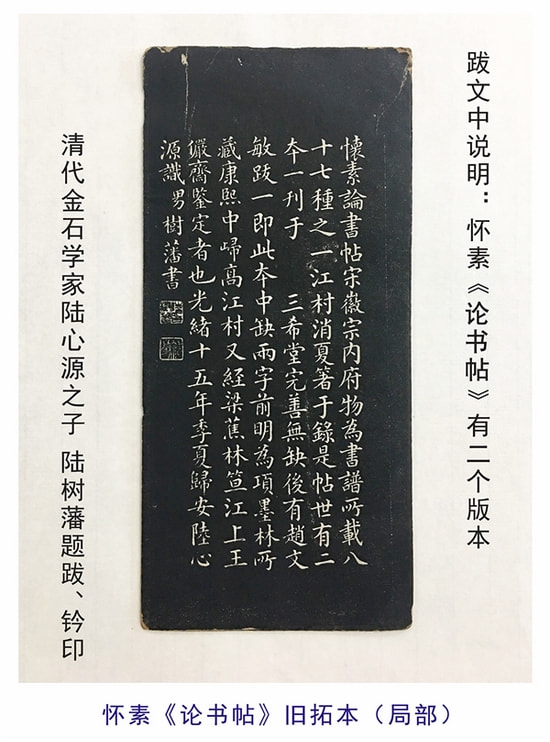 跋文中说明：怀素《论书帖》有二个版本
懷素論書帖宋徽宗内府物為書譜所載八
十七種之一江村消夏箸于錄是帖世有二
夲一刊于　三希堂完善無缺後有趙文
敏跋一即此夲中缺兩字前明為項墨林所
藏康熙中歸高江村又經梁蕉林笪江上王
儼齋鑒定者也光緒十五年季夏歸安陸心
源識男樹藩書
清代金石学家陆心源之子 陆树藩题跋、钤印
怀素《论书帖》旧拓本（局部）